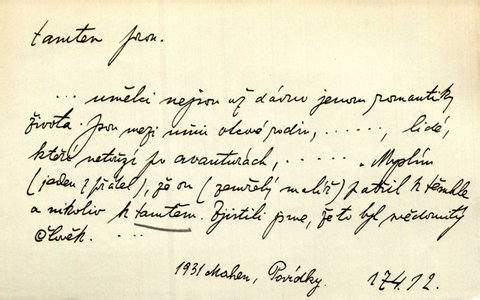 tamten pron.
... umělci nejsou už dávno jenom romantiky
života. Jsou mezi nimi otcové rodin, ......, lidé,
kteří netouží po avanturách, ...... . Myslím
(jeden z přátel), že on (zemřelý malíř) patřil k těmhle
a nikoliv k tamtěm. Zjistili jsme, že to byl svědomitý
člověk. ...
1931 Mahen, Povídky. 174.12.